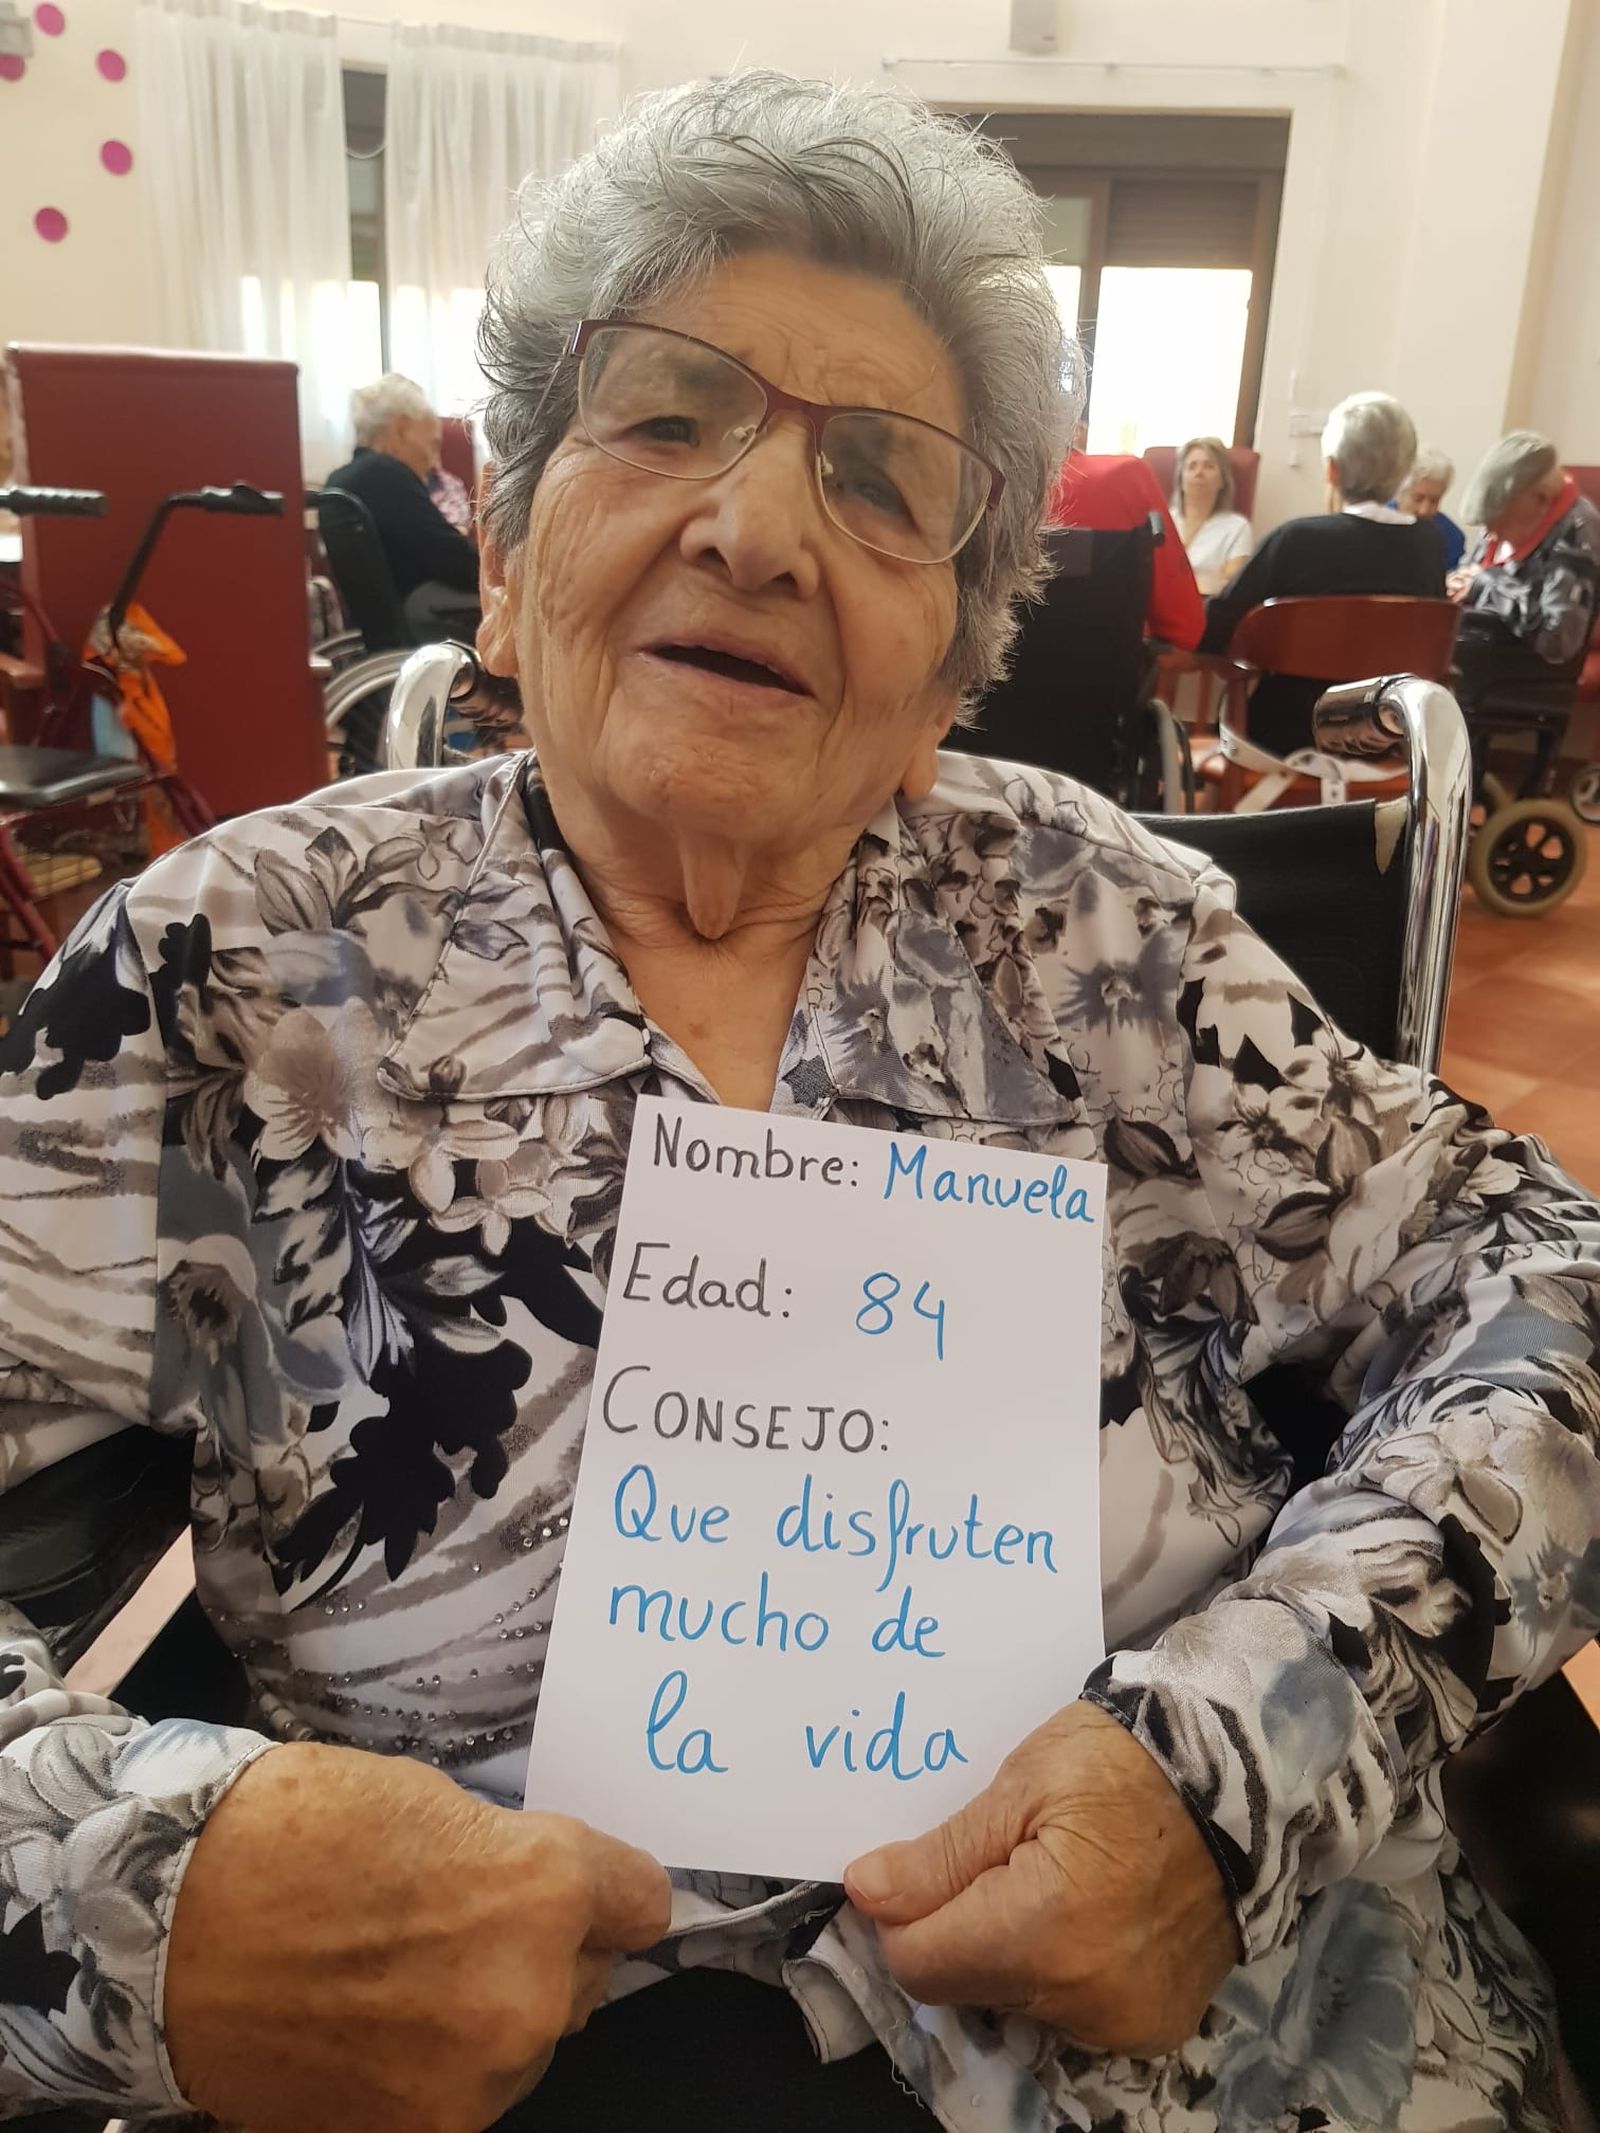 Nombre: Manuela
Edad: 84
CONSEJO:
Que disfruten
mucho de
la vida